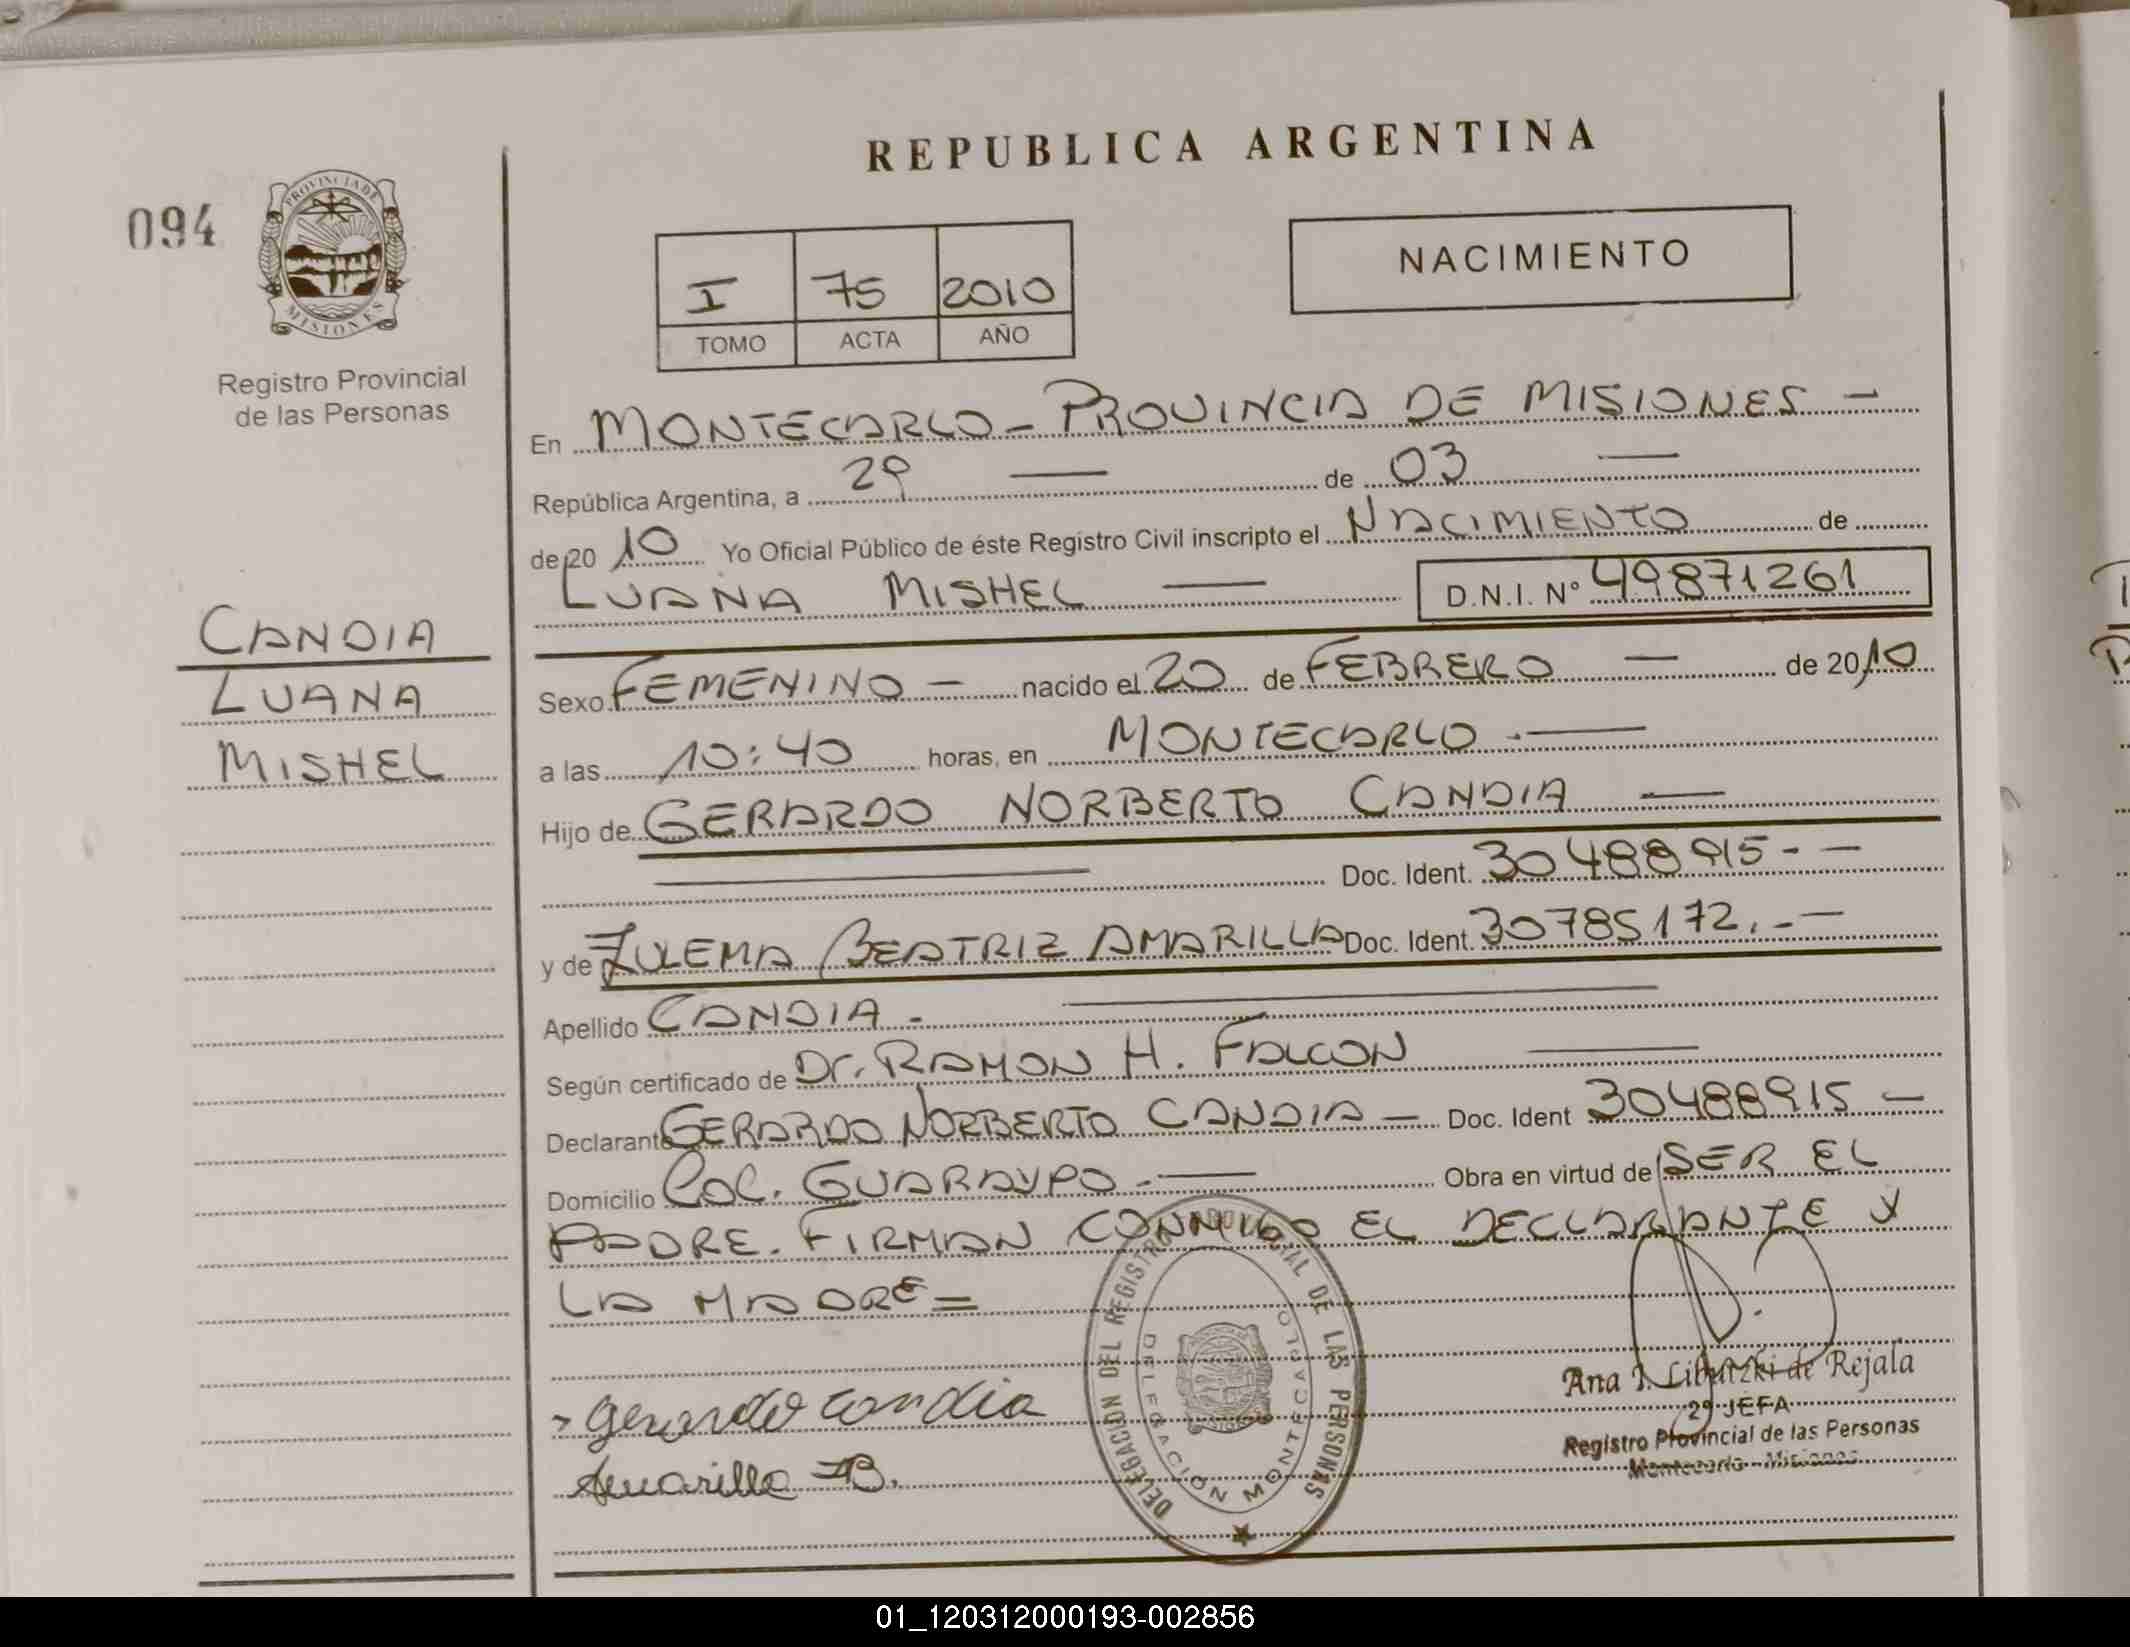 REPUBLICA ARGENTINA
094
PROVINCIA DE
MISIONES
Registro Provincial
de las Personas
I 75 2010
TOMO ACTA AÑO
NACIMIENTO
En MONTECARLO - PROVINCIA DE MISIONES -
República Argentina, a 29 — de 03 —
de 20 10 Yo Oficial Público de éste Registro Civil inscripto el NACIMIENTO de
LUANA MISHEL — D.N.I. Nº 49871261
CANDIA
LUANA
MISHEL
Sexo FEMENINO - nacido el 20 de FEBRERO — de 20 10
a las 10:40 horas, en MONTECARLO .—
Hijo de GERARDO NORBERTO CANDIA —
Doc. Ident. 30488915 - —
y de ZULEMA BEATRIZ AMARILLA Doc. Ident. 30785172.-—
Apellido CANDIA -
Según certificado de Dr. RAMON H. FALCON —
Declarante GERARDO NORBERTO CANDIA — Doc. Ident 30488915 —
Domicilio COL. GUARAYPO .— Obra en virtud de SER EL
PADRE. FIRMAN CONMIGO EL DECLARANTE Y
LA MADRE =
gerardo candia
Amarilla ZB.
DELEGACION DEL REGISTRO PROVINCIAL DE LAS PERSONAS
DELEGACION MONTECARLO
de Rejala
2º JEFA
Registro Provincial de las Personas
Montecarlo - Misiones
01_120312000193-002856